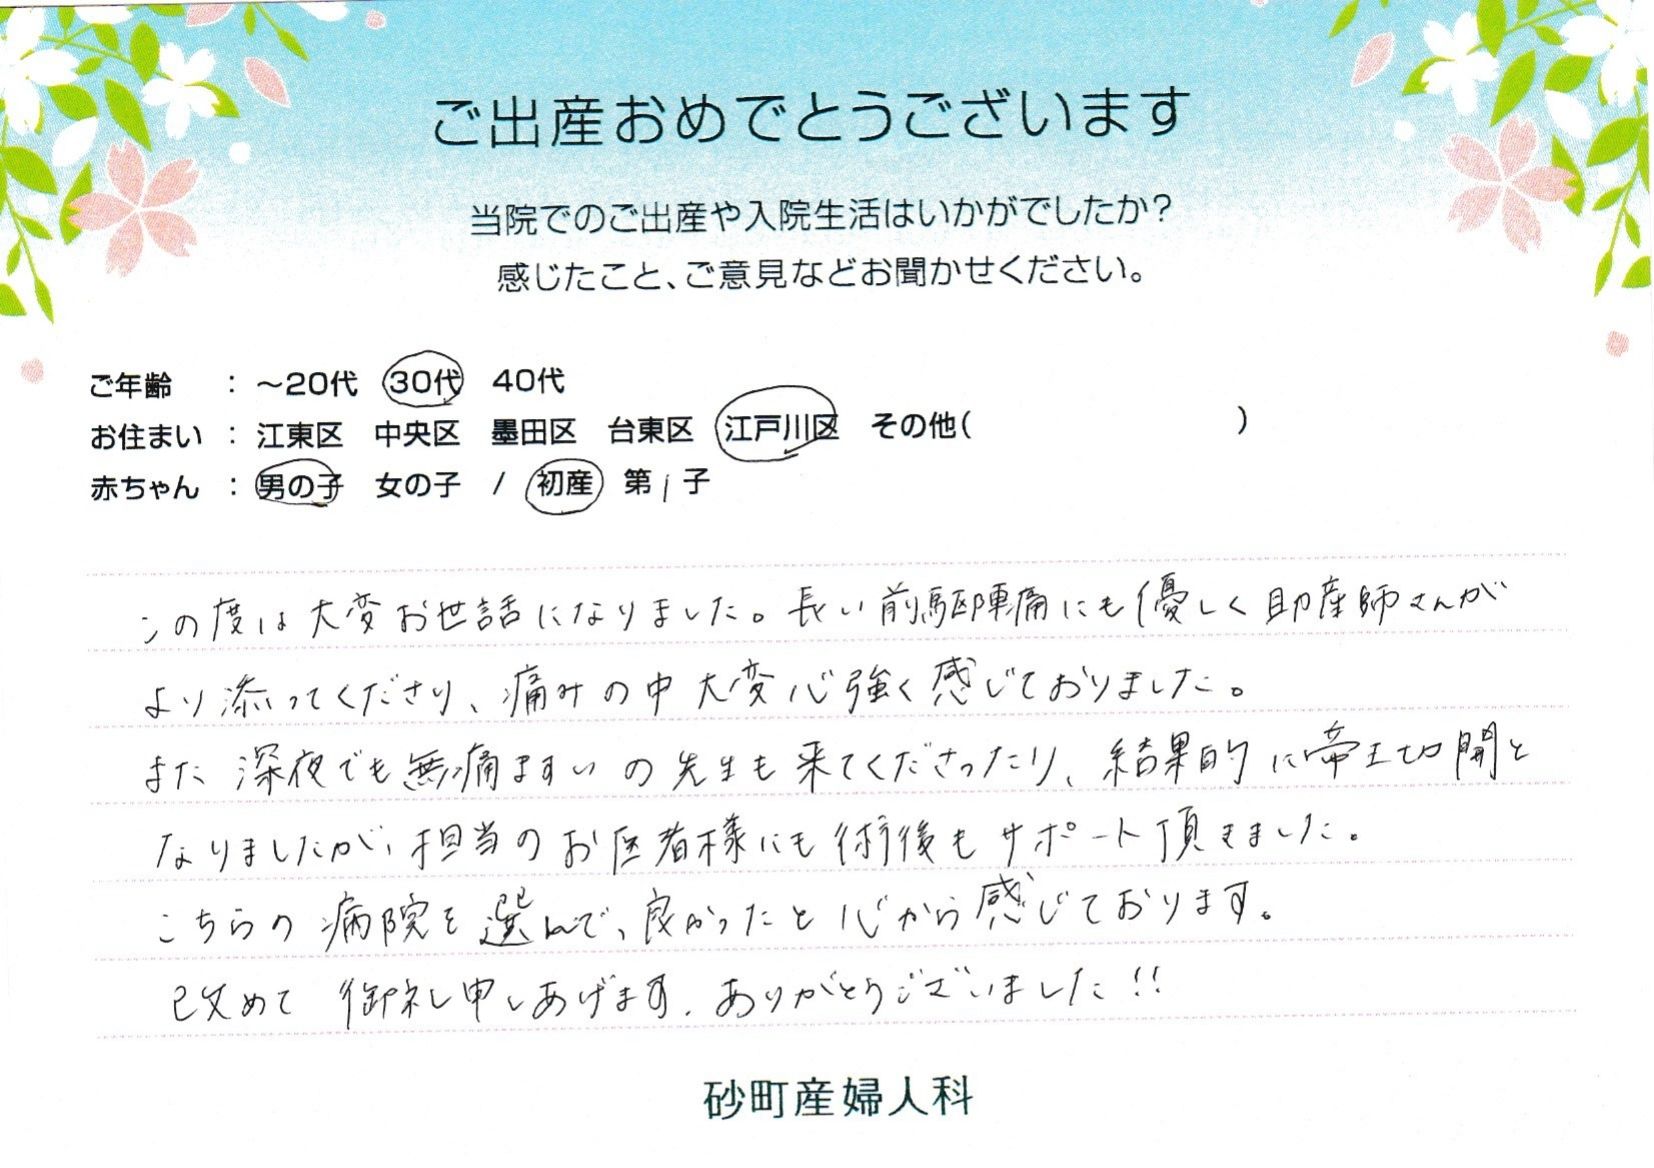 ご出産おめでとうございます
当院でのご出産や入院生活はいかがでしたか?
感じたこと、ご意見などお聞かせください。
ご年齢 : ~20代 30代 40代
お住まい : 江東区 中央区 墨田区 台東区 江戸川区 その他( )
赤ちゃん : 男の子 女の子 / 初産 第1子
この度は大変お世話になりました。長い前駆陣痛にも優しく助産師さんが
より添ってくださり、痛みの中大変心強く感じておりました。
また深夜でも無痛ますいの先生も来てくださったり、結果的に帝王切開と
なりましたが、担当のお医者様にも術後もサポート頂きました。
こちらの病院を選んで、良かったと心から感じております。
改めて御礼申しあげます。ありがとうございました!!
砂町産婦人科